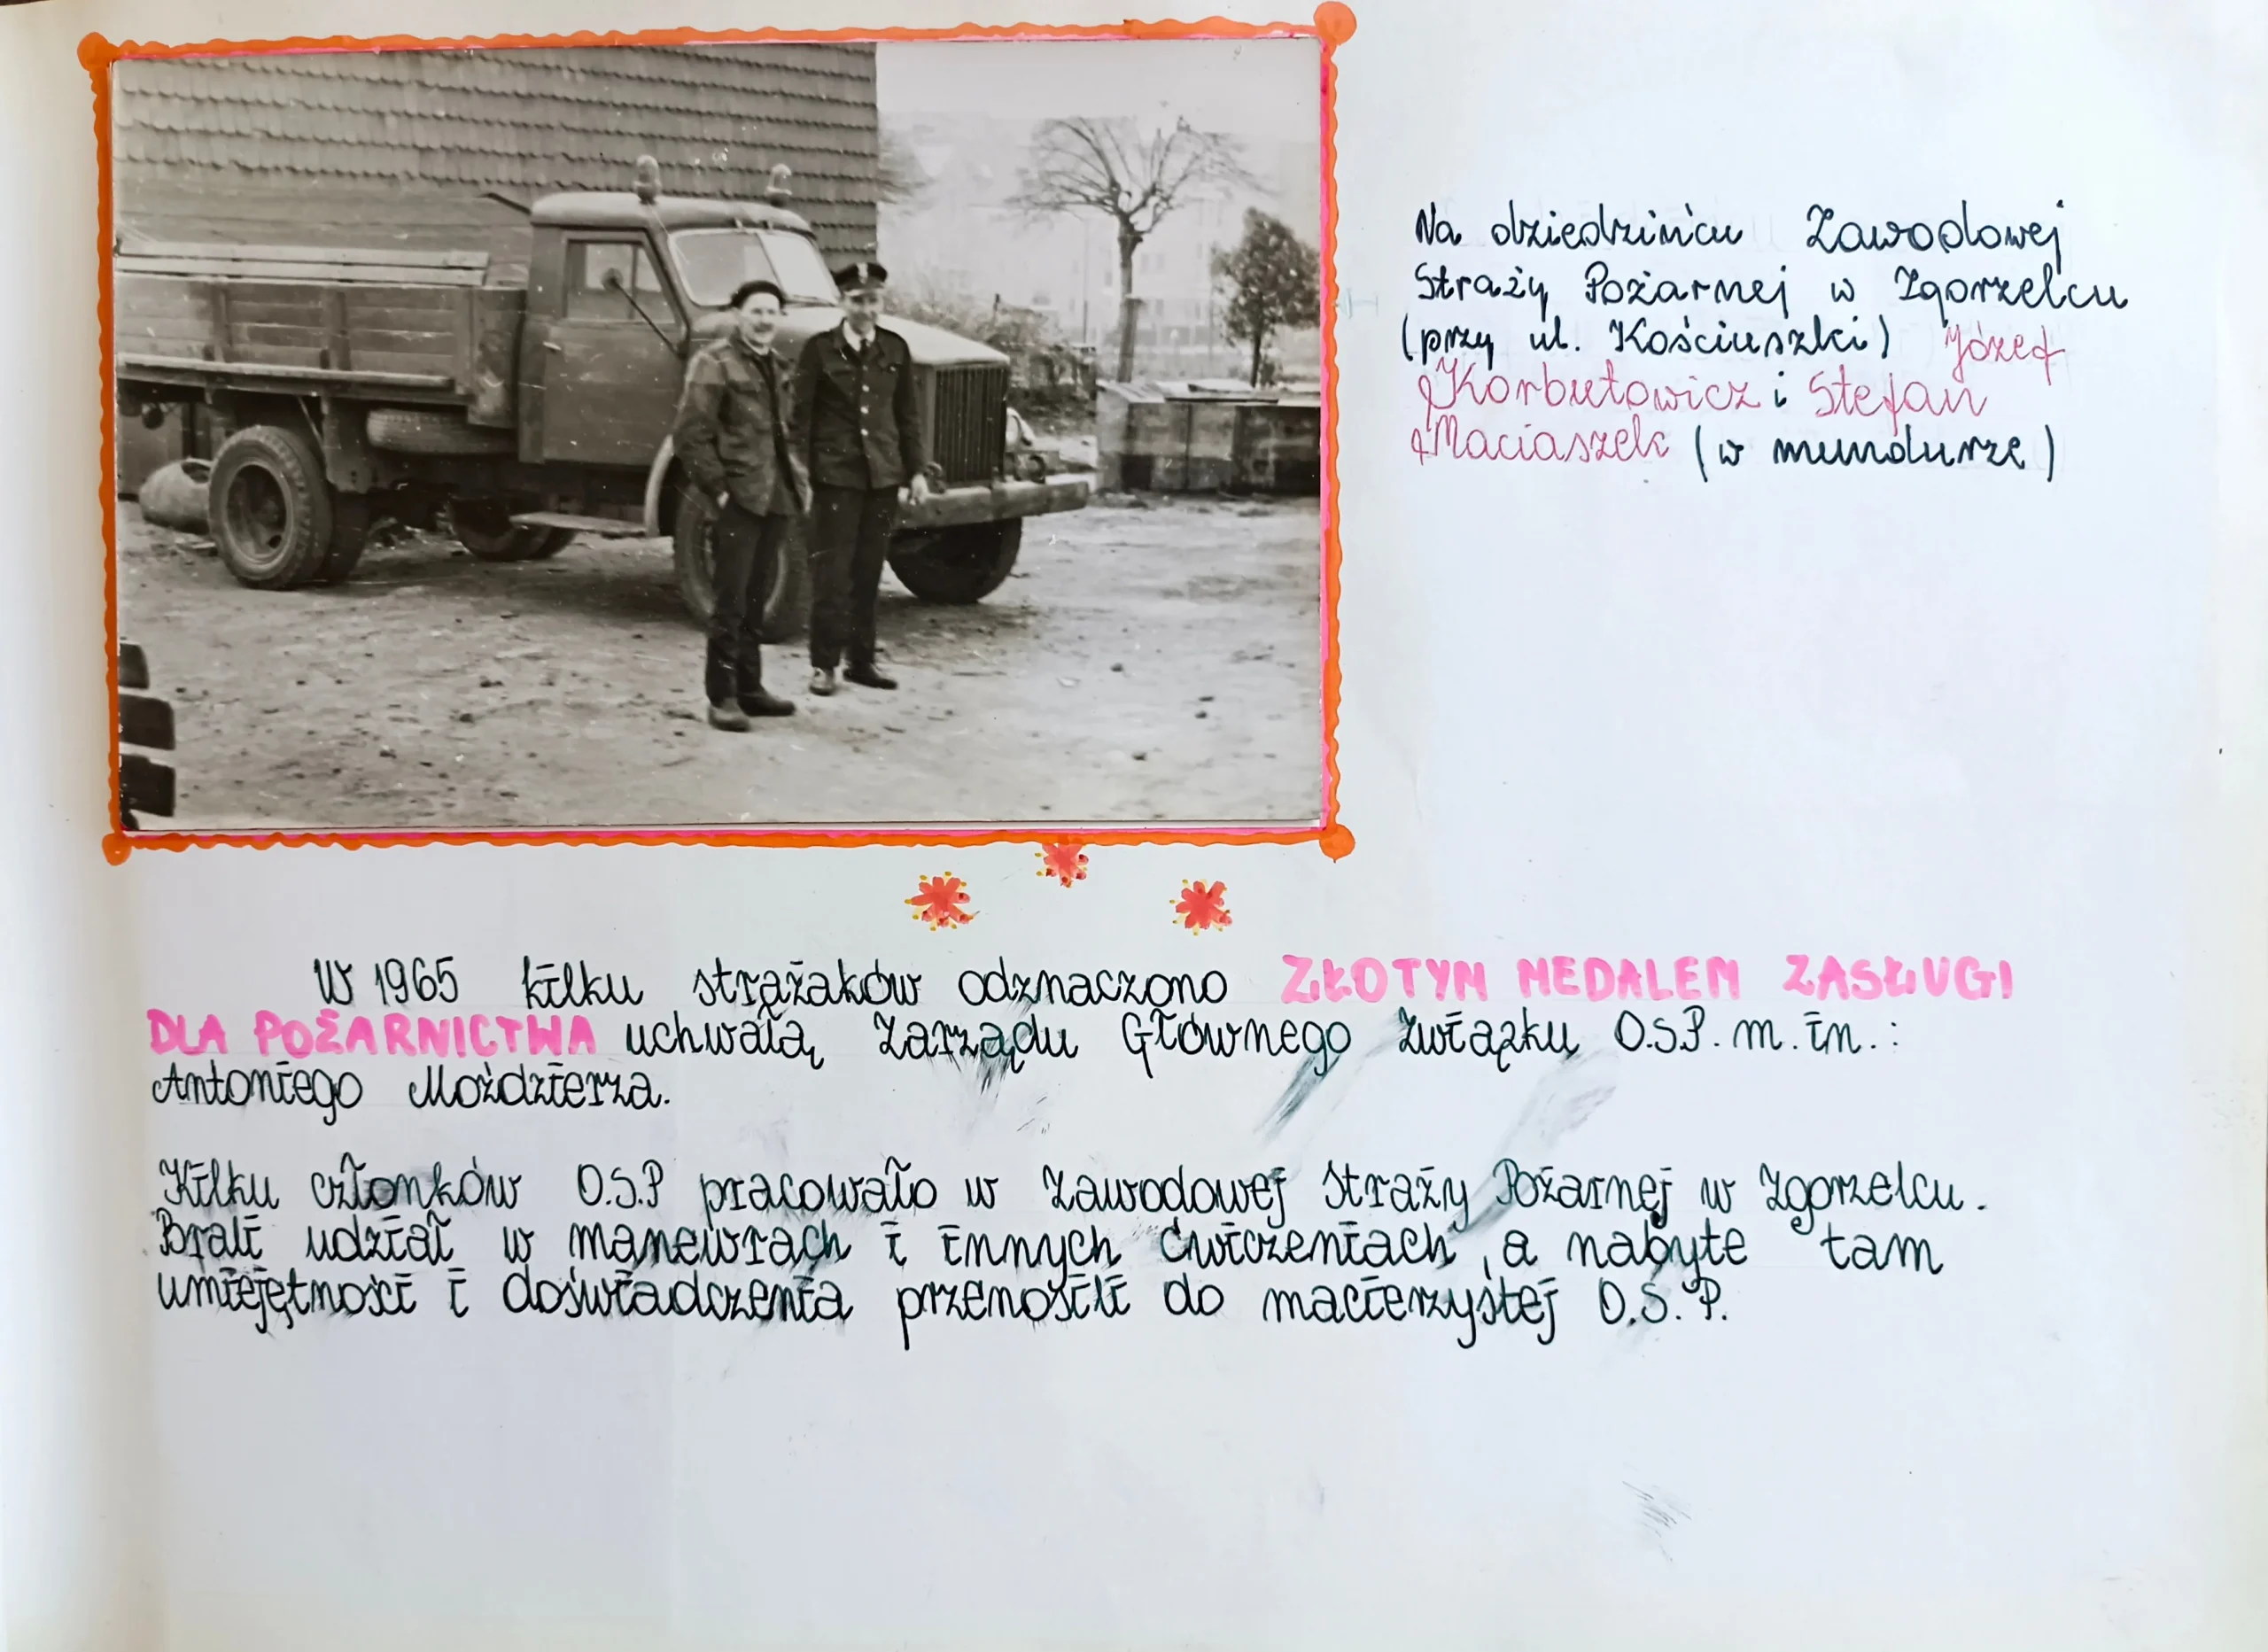 Na dziedzińcu Zawodowej
Straży Pożarnej w Zgorzelcu
(przy ul. Kościuszki) Józef
Korbutowicz i Stefan
Maciaszek (w mundurze)
W 1965 kilku strażaków odznaczono ZŁOTYM MEDALEM ZASŁUGI
DLA POŻARNICTWA uchwałą Zarządu Głównego Związku O.S.P. m.in.:
Antoniego Moździerza.
Kilku członków O.S.P pracowało w Zawodowej Straży Pożarnej w Zgorzelcu.
Brali udział w manewrach i innych ćwiczeniach, a nabyte tam
umiejętności i doświadczenia przenosili do macierzystej O.S.P.